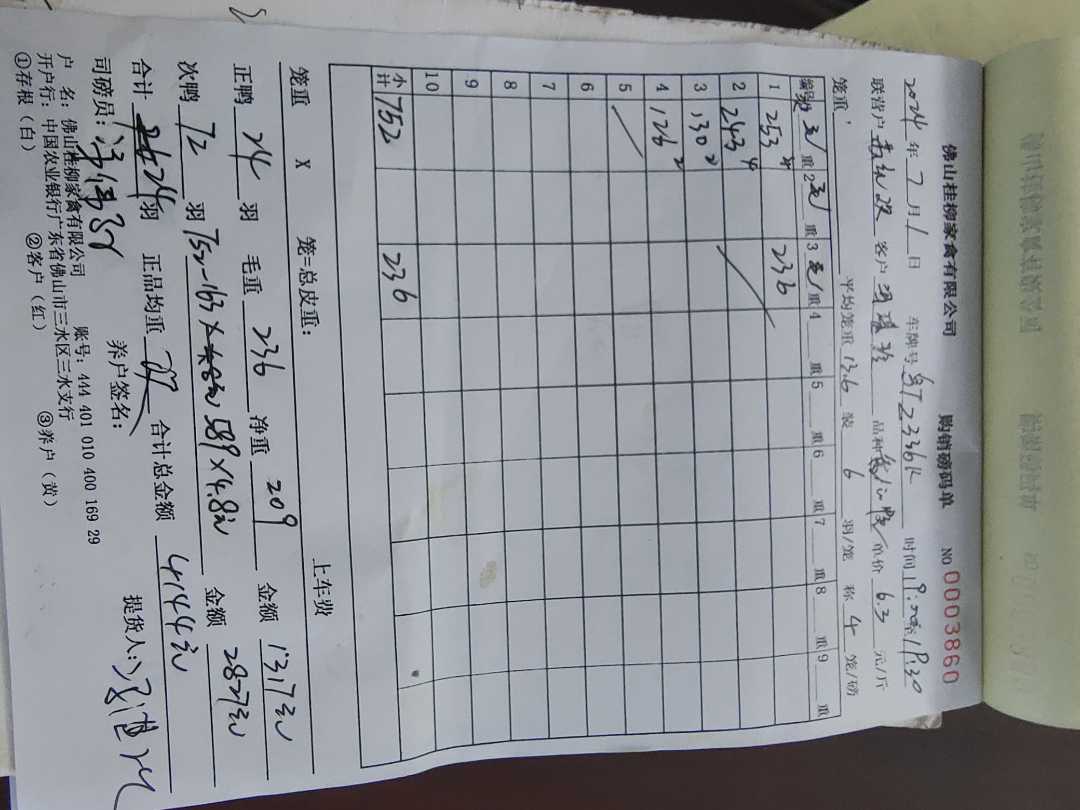 佛山桂柳家禽有限公司 购销磅码单 NO 0003860
2024年7月1日 车牌号 粤T2336K 时间
联营户 客户 品种 单价 6.3 元/斤
笼重: 平均笼重 13.6 装 6 羽/笼 称 4 笼/磅
编号 重2 重3 重4 重5 重6 重7 重8 重9 重
1 253 236
2 243 4
3 130 2
4 126 2
5
6
7
8
9
10
小计 752 236
笼重 X 笼=总皮重: 上车费
正鸭 24 羽 毛重 236 净重 209 金额 1317元
次鸭 72 羽 752-163 589×4.8元 金额 2827元
合计 羽 正品均重 合计总金额 4144元
司磅员: 养户签名: 提货人:
户 名: 佛山桂柳家禽有限公司 账号: 444 401 010 400 169 29
开户行: 中国农业银行广东省佛山市三水区三水支行
①存根(白) ②客户(红) ③养户(黄)